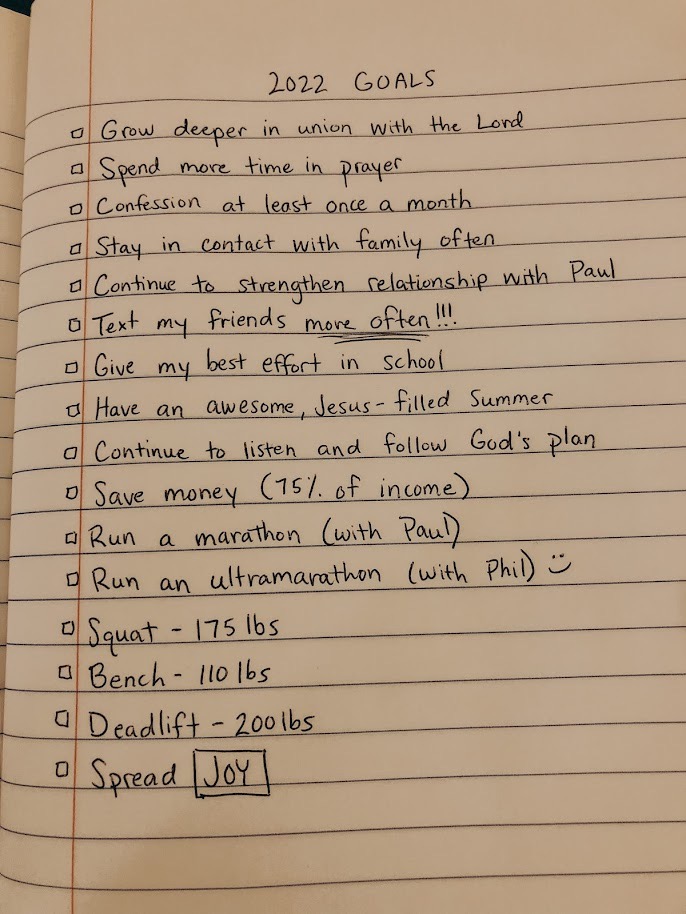 2022 GOALS
Grow deeper in union with the Lord
Spend more time in prayer
Confession at least once a month
Stay in contact with family often
Continue to strengthen relationship with Paul
Text my friends more often!!!
Give my best effort in school
Have an awesome, Jesus-filled Summer
Continue to listen and follow God's plan
Save money (75% of income)
Run a marathon (with Paul)
Run an ultramarathon (with Phil) :)
Squat - 175 lbs
Bench - 110 lbs
Deadlift - 200 lbs
Spread JOY